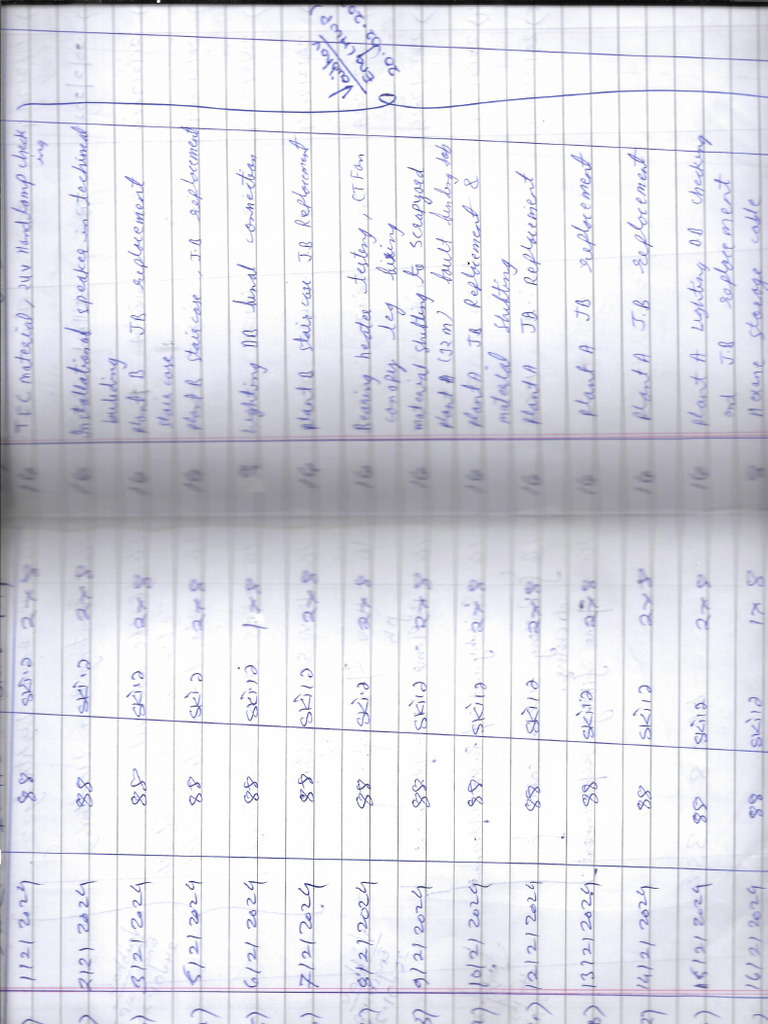 1/2/2024 88 skild 2x8 16 TFC material, 24V Handlamp check
ing
2/2/2024 88 skild 2x8 16 Installation of speaker in techincal
building
3/2/2024 88 skild 2x8 16 Plant B JB replacement
stair case
5/2/2024 88 skild 2x8 16 Plant B Staircase, J.B replacement
6/2/2024 88 skild 1x8 8 Lighting DB connection
7/2/2024 88 skild 2x8 16 Plant B Stair case JB Replacement
8/2/2024 88 skild 2x8 16 Bearing heater testing, CT Fan
canopy leg
9/2/2024 88 skild 2x8 16 material shifting to scrapyard
Plant (32m)
10/2/2024 88 skild 2x8 16 Plant A JB Replacement &
material Shifting
12/2/2024 88 skild 2x8 16 Plant A JB Replacement
13/2/2024 88 skild 2x8 16 Plant A JB replacement
14/2/2024 88 skild 2x8 16 Plant A J.B replacement
15/2/2024 88 skild 2x8 16 Plant A Lighting DB checking
and J.B replacement
16/2/2024 88 skild 1x8 8 storage cable
Vaibhav